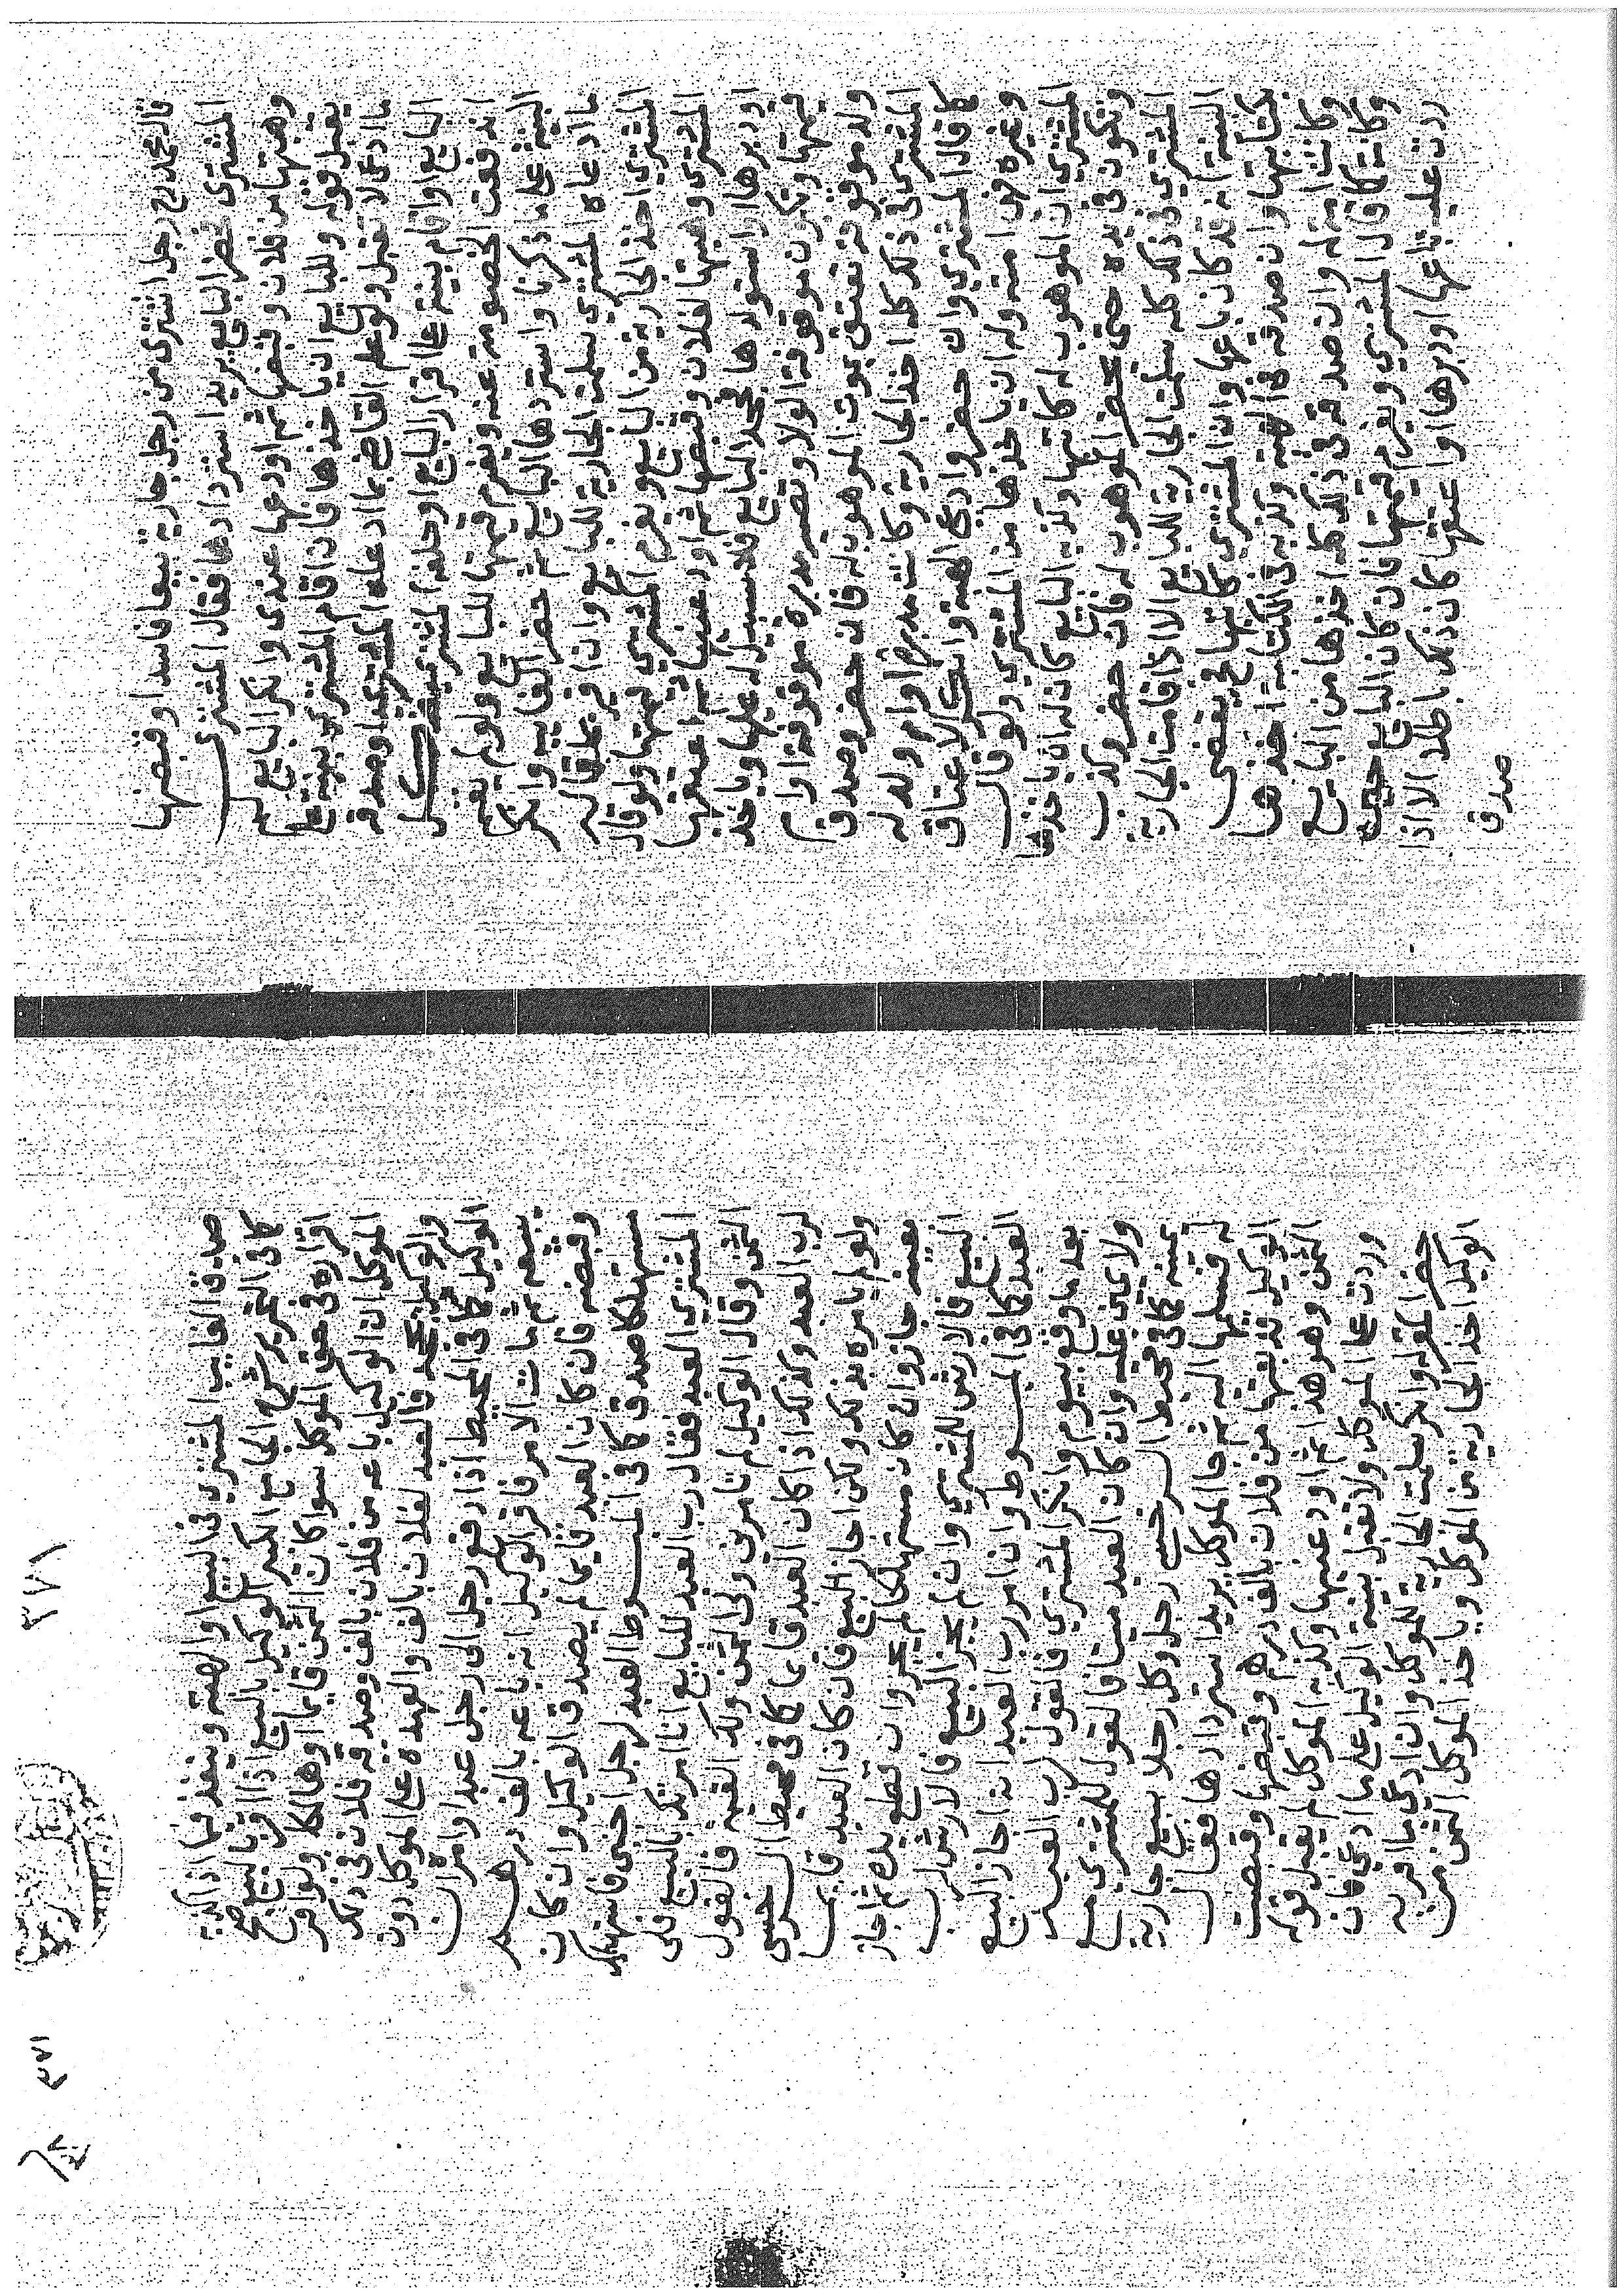 قال محمد رح رجل اشترى من رجل جارية بيعا فاسدا وقبضها
المشترى فحضر البايع يريد استردادها فقال المشترى
وهبتها من فلان وقبضها ثم اودعها عندى وانكر البايع لم
يقبل قوله وللبايع ان ياخذها فان اقام المشتري بينة على
ما ادعى لا تقبل ولو علم القاضى بما ادعاه المشترى او صدقه
البايع او اقام بينة على اقرار البايع او حلفه المشترى فنكل
اندفعت الخصومة عنه ويغرم قيمتها للبايع ولو لم يقم
البينة على ما ذكرنا واستردها البايع ثم حضر الغايب وانكر
ما ادعاه المشتري سلمت الجارية للبايع وان اقر بما قاله
المشتري اخذ الجارية من البايع ويغرم المشتري قيمتها ولو قال
المشتري وهبتها لفلان وقبضها ثم اودعنيها ثم اعتقها
او دبرها او استولدها فجحد البايع فلا سبيل له عليها وياخذ
قيمتها وتكون موقوفة الولا وتصير مدبرة موقوفة او ام
ولد موقوفة تعتق بموت الموهوب له فان حضر وصدق
المشتري في ذلك كله اخذ الجارية وكانت مدبرة او ام ولد له
كما قال المشتري وان حضر وادعى الهبة وانكر الاعتاق
وغيره فهى امته وله ان ياخذها من المشتري ولو قال
المشتري ان الموهوب له كاتبها وكذبه البايع كان له ان ياخذها
وتكون في يده حتى يحضر الموهوب له فان حضر وكذب
المشتري في ذلك كله سلمت الجارية للبايع الا اذا اقامت الجارية
البينة انه قد كان باعها وان المشتري كاتبها فح يقضى
بكتابتها وان صدقه في الهبة وكذبه في الكتابة اخذها
وكانت امة له وان صدقه في ذلك كله اخذها من البايع
وكانت كما قال المشتري ويغرم قيمتها فان كان البايع حين
ردت عليه باعها او دبرها او اعتقها كان ذلك باطلا الا اذا
صدق
٣٧١
٣٧١
صدق الغايب المشتري في البيع والهبة وينفذ فيما اذا كذبه
كما في التحرير شرح الجامع الكبير الوكيل بالبيع اذا اقر بالبيع صح
اقراره في حق الموكل سوا كان الثمن قايما او هالكا ولو اقر
الموكل ان الوكيل باعه من فلان بالف وصدقه فلان في ذلك
والوكيل يجحد فالعبد لفلان بالف والعهدة على الموكل دون
الوكيل كما في المحيط اذا دفع رجل الى رجل عبدا وامره ان
يبيعه ثم مات الامر فاقر الوكيل انه باعه بالف درهم
وقبضه فان كان العبد قايما لم يصدق الوكيل وان كان
مستهلكا صدق كما في المبسوط العبد لرجل اجنبى فاستهلك
المشتري العبد فقال رب العبد للبايع انا امرتك بالبيع فلى
الثمن وقال الوكيل لم تامرنى ولى الثمن ولك القيمة فالقول
لرب العبد وكذلك اذا كان العبد قايما كما في محيط السرخسى
ولو لم يامره بذلك ولكن اجاز البيع فان كان العبد قايما
بعينه جاز وان كان مستهلكا لم يجز وان قطع يده ثم اجاز
البيع فالارش للمشتري وان لم يجز البيع فالارش لرب
العبد كما في المبسوط وان امر رب العبد انه اجاز البيع
بعد ما وقع بيوم وانكر المشتري فالقول لرب العبد
ولا يمين عليه وان كان العبد ميتا فالقول للمشتري مع
يمينه كما في محيط السرخسى رجل وكل رجلا ببيع جارية
له فسلمها اليه ثم جا الموكل يريد استردادها فقال
الوكيل قد بعتها من فلان بالف درهم وقبضها وقبضت
الثمن وهو هذا ثم اودعنيها وكذبه الموكل لم يقبل قوله
وردت على الموكل ولا تقبل بينة الوكيل على ما ادعى فان
حضر المقر له وانكر سلمت الجارية للموكل وان ادعى ما اقر به
الوكيل اخذ الجارية من الموكل وياخذ الموكل الثمن من